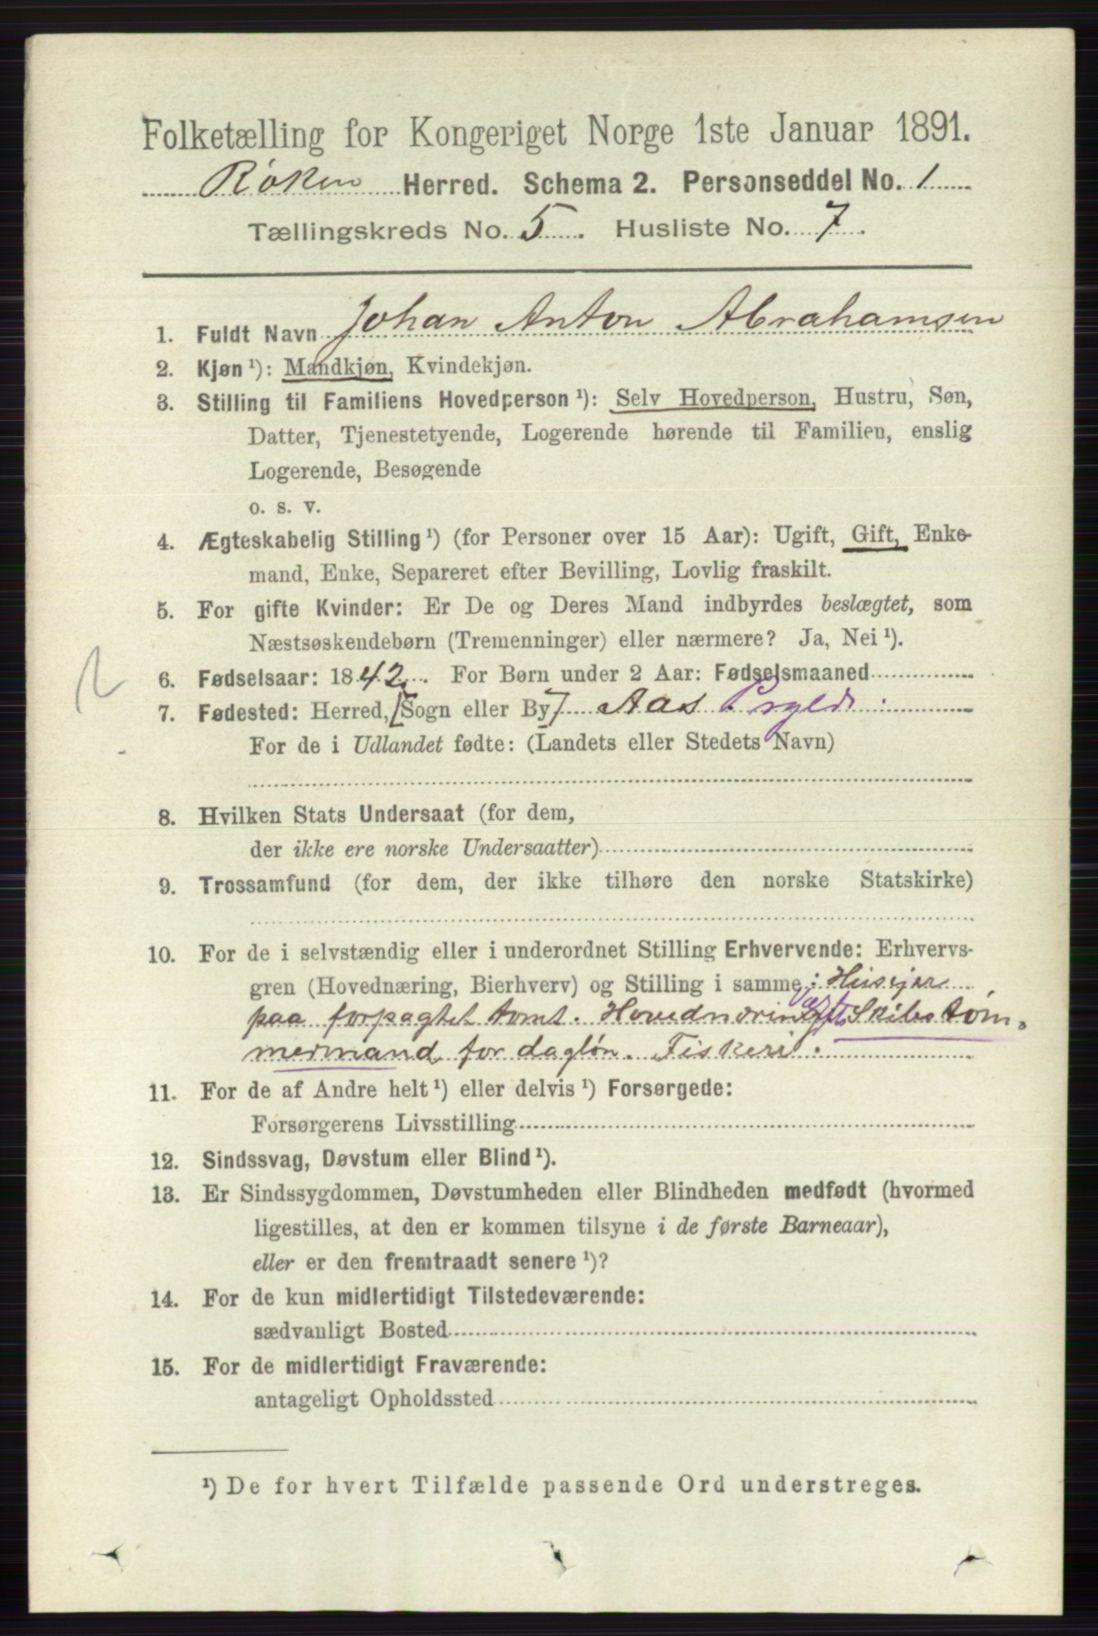 Folketælling for Kongeriget Norge 1ste Januar 1891.
Røken Herred. Schema 2. Personseddel No. 1
Tællingskreds No. 5. Husliste No. 7.
1. Fuldt Navn Johan Anton Abrahamsen
2. Kjøn ¹): Mandkjøn, Kvindekjøn.
3. Stilling til Familiens Hovedperson ¹): Selv Hovedperson, Hustru, Søn,
Datter, Tjenestetyende, Logerende hørende til Familien, enslig
Logerende, Besøgende
o. s. v.
4. Ægteskabelig Stilling ¹) (for Personer over 15 Aar): Ugift, Gift, Enke-
mand, Enke, Separeret efter Bevilling, Lovlig fraskilt.
5. For gifte Kvinder: Er De og Deres Mand indbyrdes beslægtet, som
Næstsøskendebørn (Tremenninger) eller nærmere? Ja, Nei ¹).
6. Fødselsaar: 1842. For Børn under 2 Aar: Fødselsmaaned
7. Fødested: Herred, [Sogn eller By] Aas
For de i Udlandet fødte: (Landets eller Stedets Navn)
8. Hvilken Stats Undersaat (for dem,
der ikke ere norske Undersaatter)
9. Trossamfund (for dem, der ikke tilhøre den norske Statskirke)
10. For de i selvstændig eller i underordnet Stilling Erhvervende: Erhvervs-
gren (Hovednæring, Bierhverv) og Stilling i samme: Husejer
paa forpagtet tomt. Hovednæring Skibstøm-
mermand for dagløn. Fiskeri.
11. For de af Andre helt ¹) eller delvis ¹) Forsørgede:
Forsørgerens Livsstilling
12. Sindssvag, Døvstum eller Blind ¹).
13. Er Sindssygdommen, Døvstumheden eller Blindheden medfødt (hvormed
ligestilles, at den er kommen tilsyne i de første Barneaar),
eller er den fremtraadt senere ¹)?
14. For de kun midlertidigt Tilstedeværende:
sædvanligt Bosted
15. For de midlertidigt Fraværende:
antageligt Opholdssted
¹) De for hvert Tilfælde passende Ord understreges.